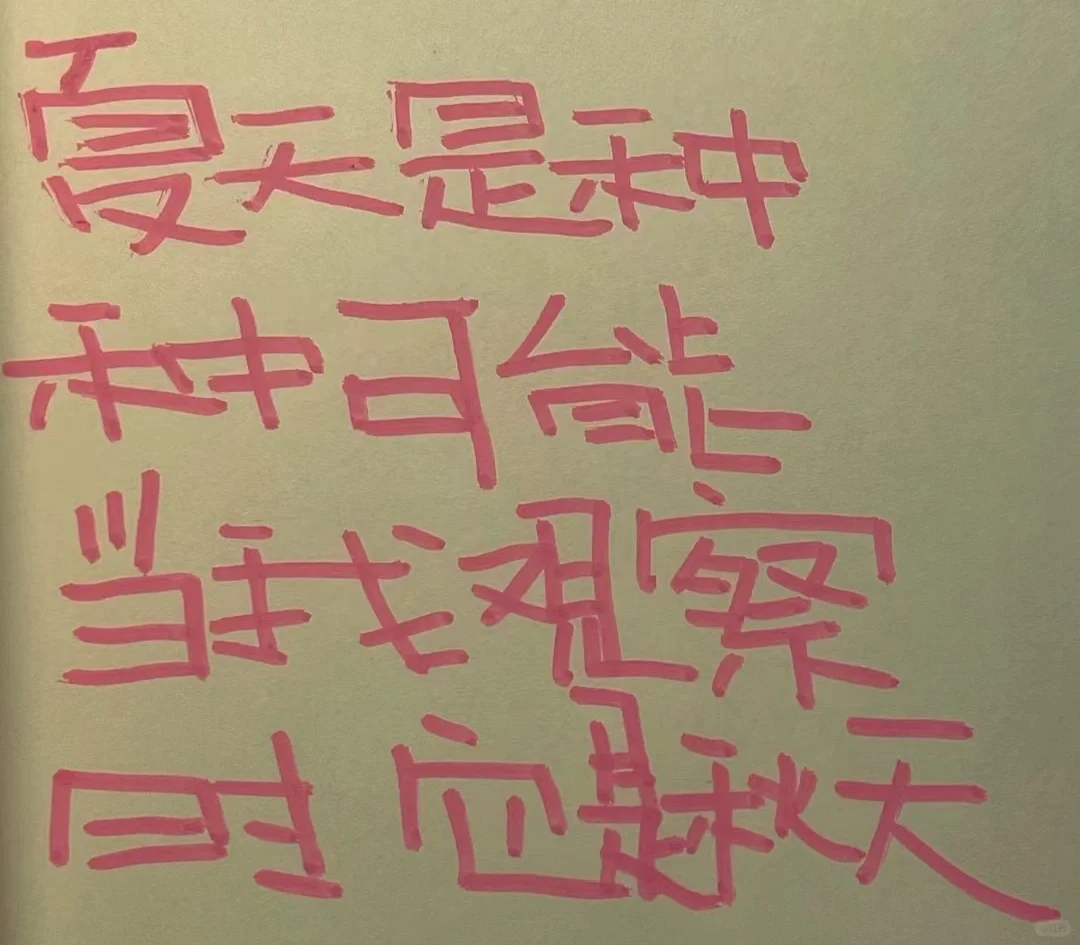 夏天是种
种可能
当我观察
时它是秋天